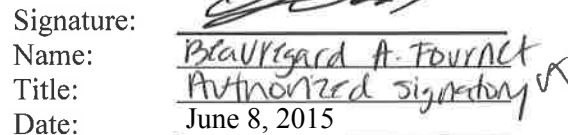 Signature:
Name: Beauregard A. Fournet
Title: Authorized signatory
Date: June 8, 2015